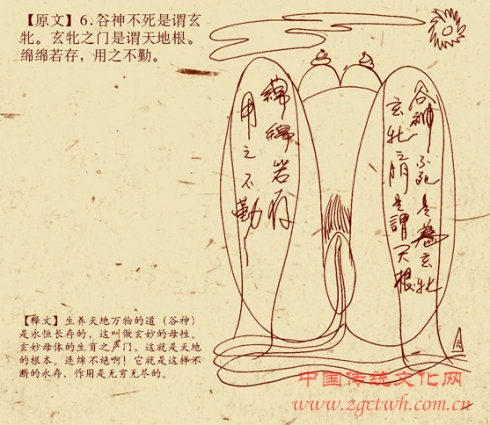 【原文】6.谷神不死是谓玄
牝。玄牝之门是谓天地根。
绵绵若存，用之不勤。
谷神不死是為玄牝
玄牝之門是謂天根
綿綿若存
用之不勤
【释文】生养天地万物的道（谷神）
是永恒长存的，这叫做玄妙的母性。
玄妙母体的生育之产门，这就是天地
的根本。连绵不绝啊！它就是这样不
断的永存，作用是无穷无尽的。
中国传统文化网
www.zgctwh.com.cn